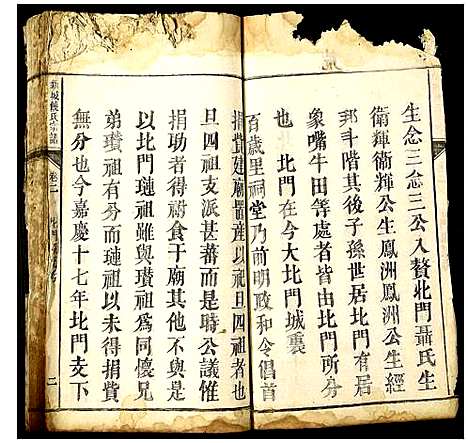 生念三念三公入贅北門聶氏生
衛輝衛輝公生鳳洲鳳洲公生經
邦斗階其後子孫世居北門有居
象嘴牛田等處者皆由北門所分
也
北門在今大北門城裏
百歲里祠堂乃前明政和令倡首
捐貲建廟置産以祀且四祖者也
且四祖支派甚蕃而是時公議惟
捐功者得祔食于廟其他不與是
以北門璉祖雖與瓚祖爲同懷兄
弟瓚祖有分而璉祖以未得捐貲
無分也今嘉慶十七年北門支下
氏宗譜
卷二
二